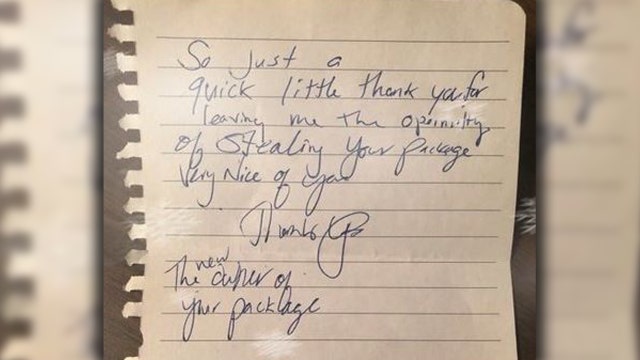 So Just a
quick little thank you for
leaving me the oportnity
of Stealing Your package
Very Nice of you
Thanks
The new owner of
your package